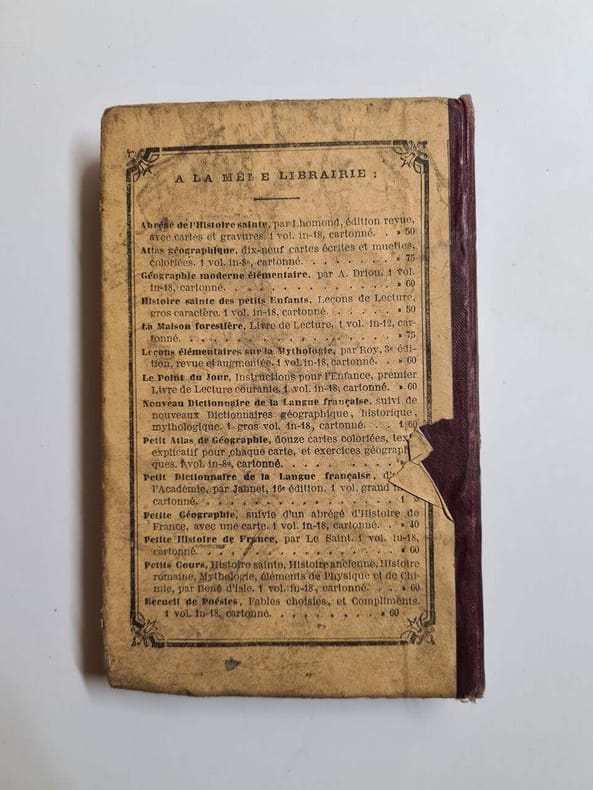 A LA MÊME LIBRAIRIE :
Abrégé de l'Histoire sainte, par Lhomond, édition revue,
avec cartes et gravures. 1 vol. in-18, cartonné. . » 50
Atlas géographique, dix-neuf cartes écrites et muettes,
coloriées. 1 vol. in-8º, cartonné. . . . . . . . » 75
Géographie moderne élémentaire, par A. Driou. 1 vol.
in-18, cartonné. . . . . . . . . . . . . . . . » 60
Histoire sainte des petits Enfants, Leçons de Lecture,
gros caractère. 1 vol. in-18, cartonné. . . . . . » 50
La Maison forestière, Livre de Lecture. 1 vol. in-12, car-
tonné. . . . . . . . . . . . . . . . . . . . » 75
Leçons élémentaires sur la Mythologie, par Roy, 3e édi-
tion, revue et augmentée. 1 vol. in-18, cartonné. . » 60
Le Point du Jour, Instructions pour l'Enfance, premier
Livre de Lecture courante. 1 vol. in-18, cartonné. » 60
Nouveau Dictionnaire de la Langue française, suivi de
nouveaux Dictionnaires géographique, historique,
mythologique. 1 gros vol. in-18, cartonné. . . . 1 60
Petit Atlas de Géographie, douze cartes coloriées,
explicatif pour chaque carte, et exercices géographi
ques. 1 vol. in-8º, cartonné. . . . . . . . . . »
Petit Dictionnaire de la Langue française,
l'Académie, par Jannet, 16e édition. 1 vol. grand
cartonné. . . . . . . . . . . . . . . . . . . 1
Petite Géographie, suivie d'un abrégé d'Histoire de
France, avec une carte. 1 vol. in-18, cartonné. . » 40
Petite Histoire de France, par Le Saint. 1 vol. in-18,
cartonné. . . . . . . . . . . . . . . . . . . » 60
Petits Cours, Histoire sainte, Histoire ancienne, Histoire
romaine, Mythologie, éléments de Physique et de Chi-
mie, par René d'Isle. 1 vol. in-18, cartonné. . . » 60
Recueil de Poésies, Fables choisies, et Compliments.
1 vol. in-18, cartonné. . . . . . . . . . . . . » 60